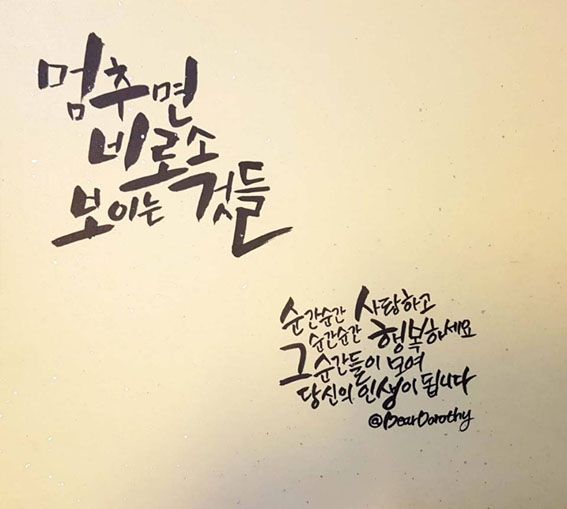 멈추면
비로소
보이는 것들
순간순간 사랑하고
순간순간 행복하세요
그 순간들이 모여
당신의 인생이 됩니다
@BearDorothy